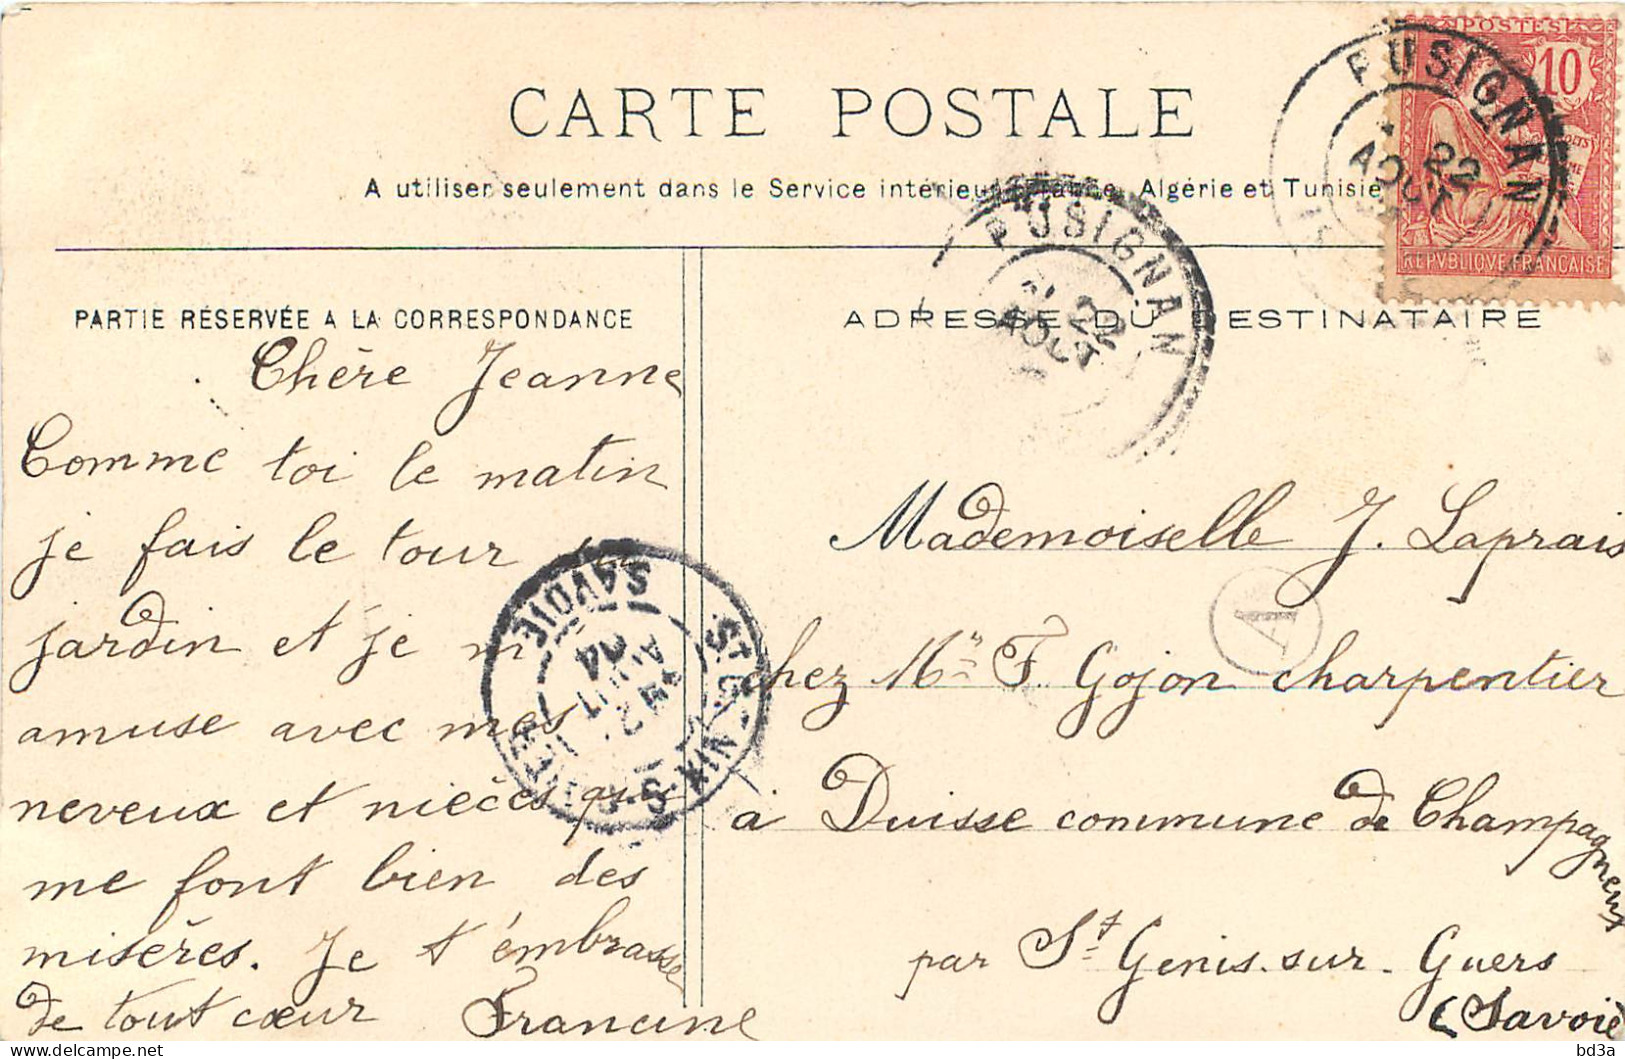 CARTE POSTALE
A utiliser seulement dans le Service intérieur, France, Algérie et Tunisie
POSTES
10
REPVBLIQVE FRANCAISE
PUSIGNAN
22
AOUT
PUSIGNAN
22
AOUT
PARTIE RÉSERVÉE A LA CORRESPONDANCE
ADRESSE DU DESTINATAIRE
Chère Jeanne
Comme toi le matin
je fais le tour du
jardin et je m'
amuse avec mes
neveux et nièces qui
me font bien des
misères. Je t'émbrasse
de tout cœur Francine
Mademoiselle J. Laprais
chez Mr F. Gojon charpentier
à Duisse commune de Champagneux
par St Genis-sur-Guers
(Savoie
A
SAVOIE
04
AOUT
bd3a